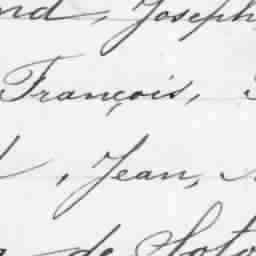 nd, Joseph
François,
, Jean,
de Soto